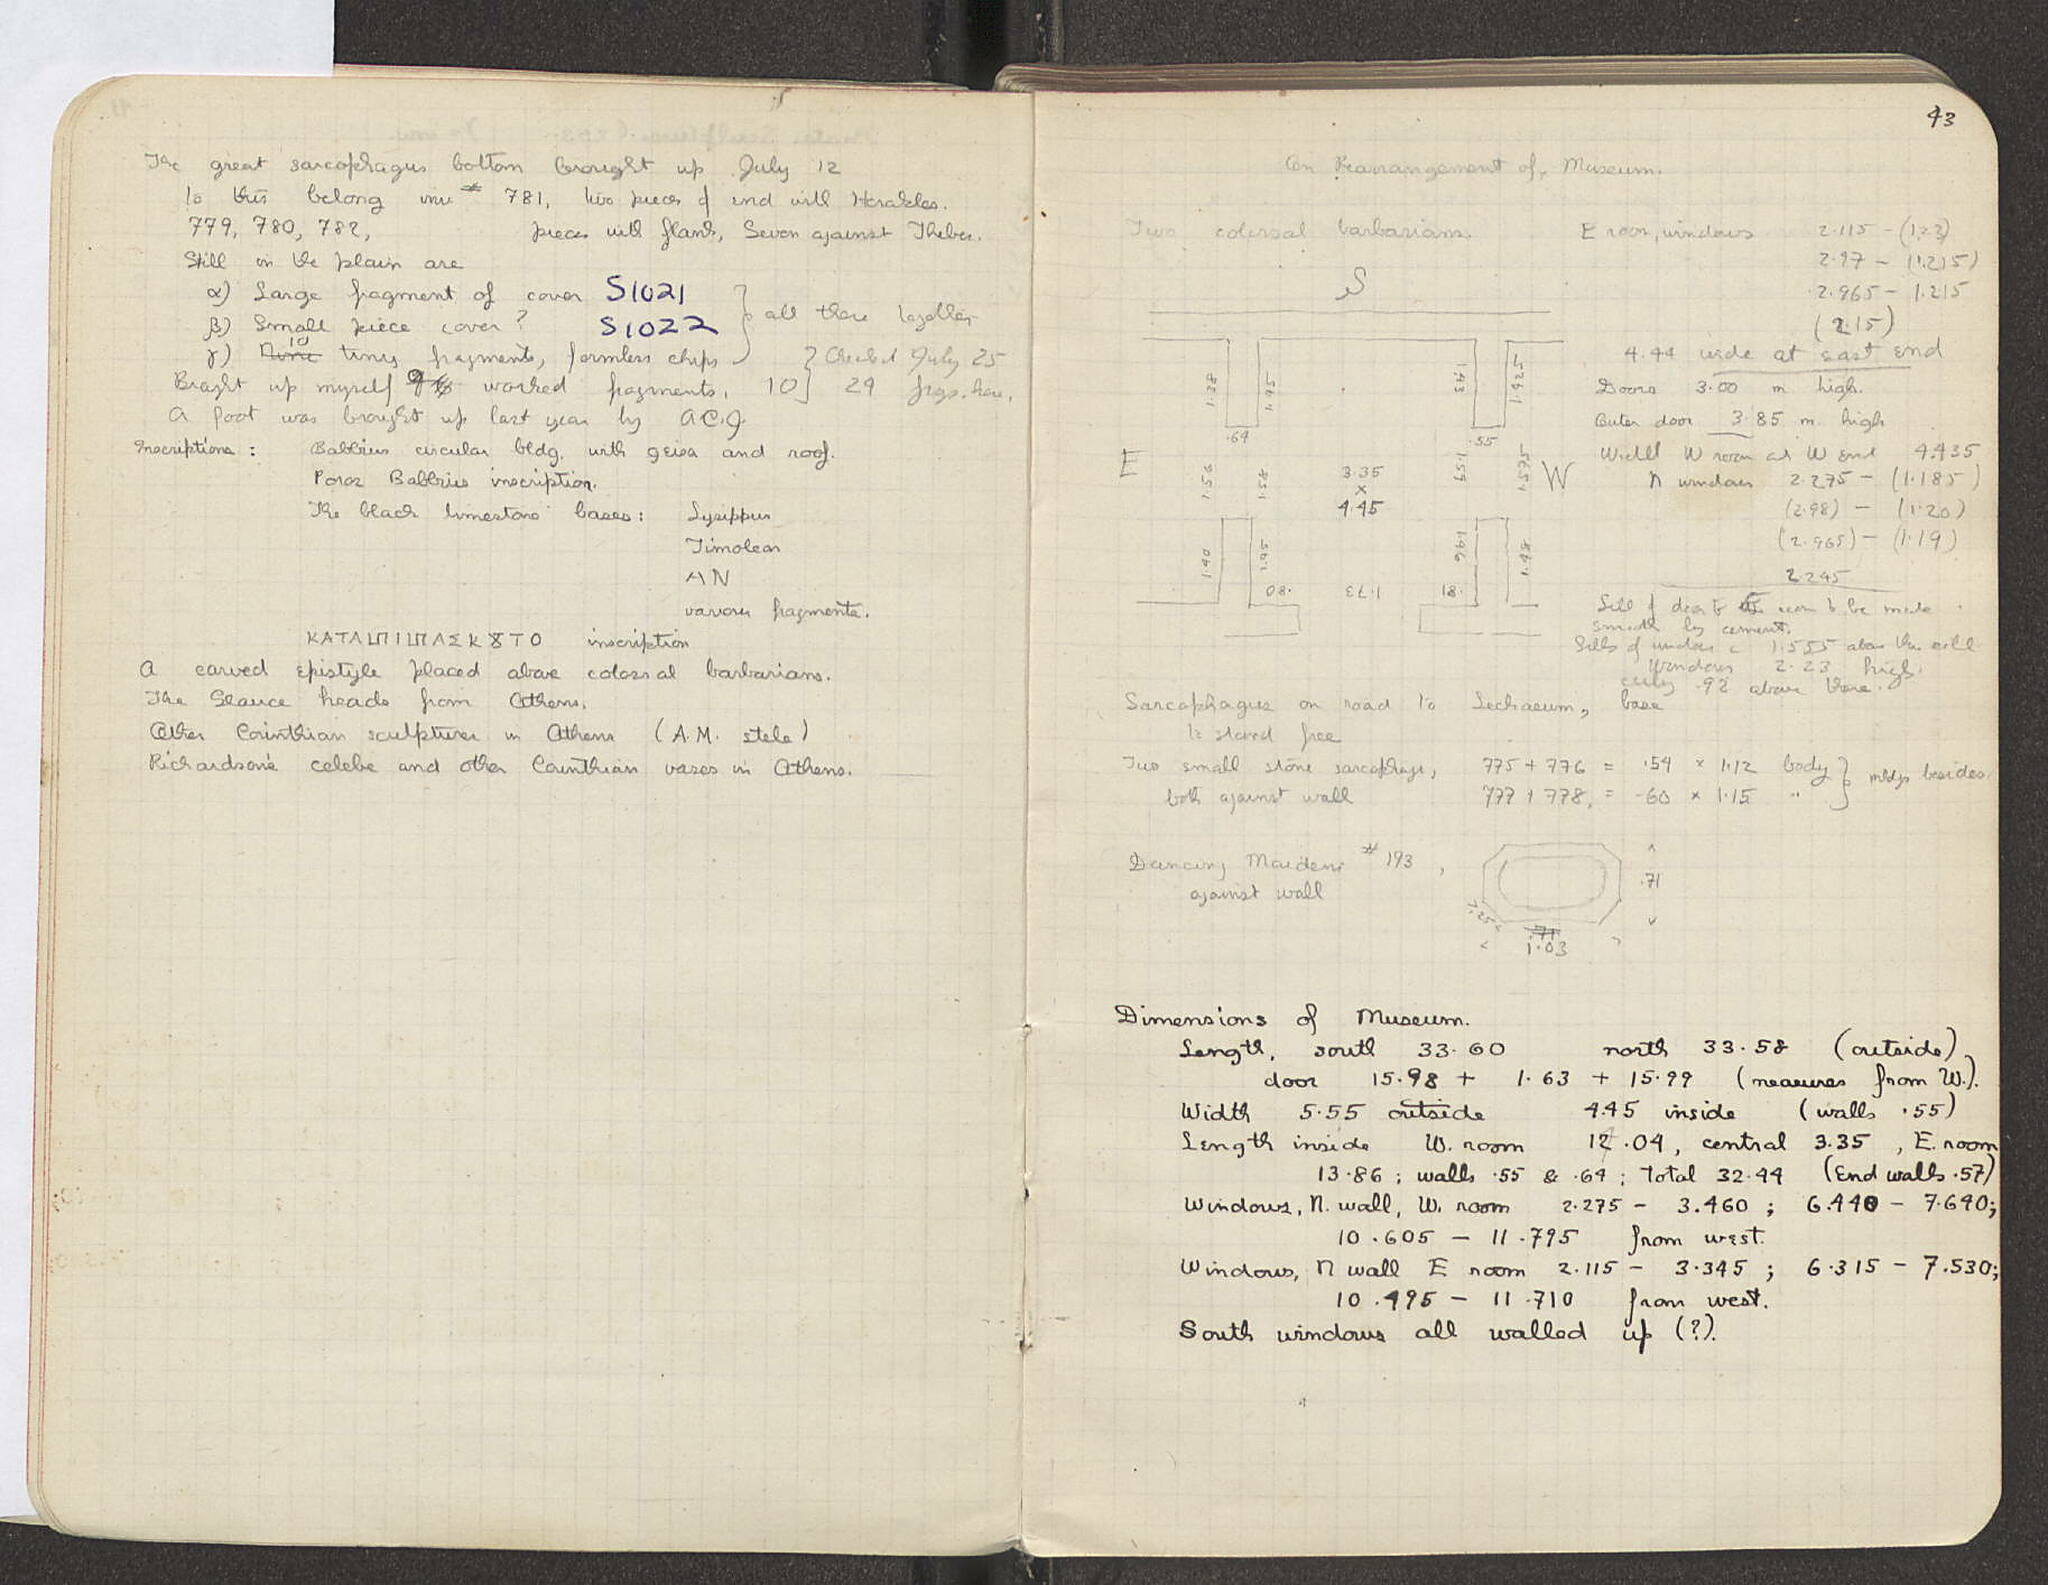 The great sarcophagus bottom brought up July 12
to this belong inv # 781, two pieces of end with Herakles.
779, 780, 782, pieces with flank, Seven against Thebes.
Still in the plain are
α) Large fragment of cover S1021
β) Small piece cover? S1022 } all there together
γ) Nine 10 tiny fragments, formless chips } Checked July 25
Braght up myself 9 worked fragments, 10 ] 29 frgs. here,
A foot was brought up last year by A.C.J.
Inscriptions: Babbius circular bldg. with geisa and roof.
Poros Babbius inscription.
The black limestone bases: Lysippus
Timolean
AN
various fragments.
inscription
A carved epistyle placed above colossal barbarians.
The Glauce heads from Athens.
Other Corinthian sculptures in Athens (A.M. stele)
Richardson's celebe and other Corinthian vases in Athens.
43
On Rearrangement of Museum.
Two colossal barbarians.
E room, windows 2.115 - (1.23)
2.97 - (1.215)
2.965 - 1.215
(2.15)
4.44 wide at east end
Doors 3.00 m high.
Outer door 3.85 m. high
Width W room at W end 4.435
N windows 2.275 - (1.185)
(2.98) - (1.20)
(2.965) - (1.19)
2.245
S
1.38 1.45 1.43 1.425
.64 .55
E 1.56 1.58 3.35 1.59 1.595 W
x
4.45
1.40 1.45 1.46 1.48
.80 1.73 .81
Sill of door to room to be made
smooth by cement.
Sills of windows c 1.555 above this sill
Windows 2.23 high.
ceilg .92 above there.
Sarcophagus on road to Lechaeum, base
to stand free
Two small stone sarcophagi, 775 + 776 = .54 x 1.12 body } mldgs besides.
both against wall 777 + 778, = .60 x 1.15 "
Dancing Maidens # 193,
against wall
.71
.25
.71
1.03
Dimensions of Museum.
Length, south 33.60 north 33.58 (outside)
door 15.98 + 1.63 + 15.99 (measures from W.).
Width 5.55 outside 4.45 inside (walls .55)
Length inside W. room 14.04, central 3.35, E. room
13.86; walls .55 & .64; Total 32.44 (End walls .57)
Windows, N. wall, W. room 2.275 - 3.460; 6.440 - 7.640;
10.605 - 11.795 from west.
Windows, N wall E room 2.115 - 3.345; 6.315 - 7.530;
10.495 - 11.710 from west.
South windows all walled up (?).